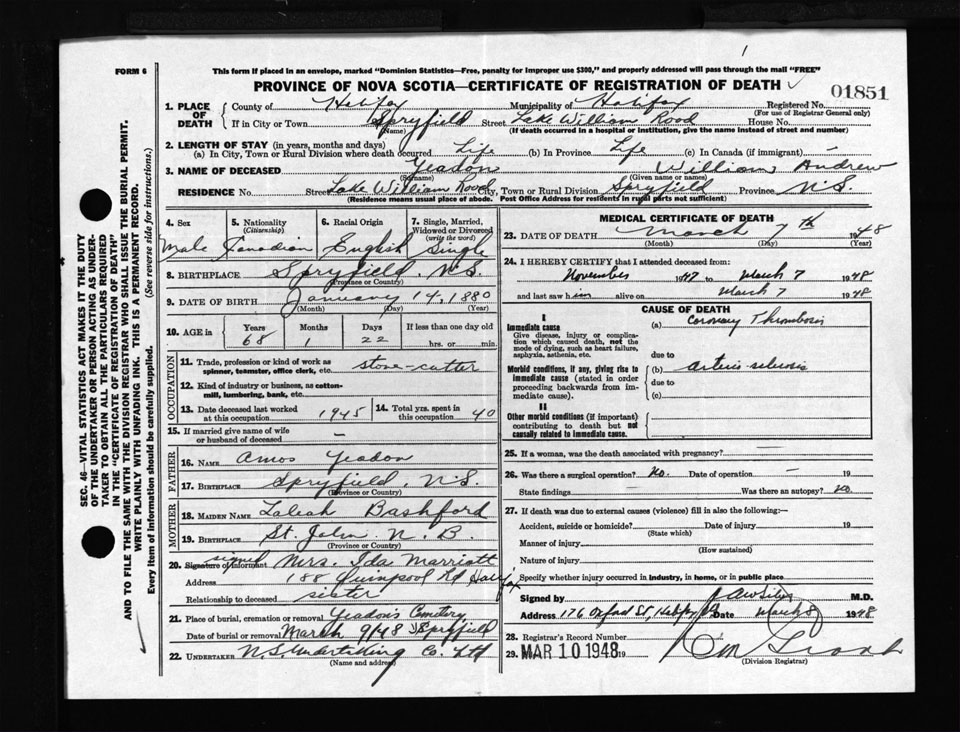 FORM 6
This form if placed in an envelope, marked "Dominion Statistics—Free, penalty for improper use $300," and properly addressed will pass through the mail "FREE"
PROVINCE OF NOVA SCOTIA—CERTIFICATE OF REGISTRATION OF DEATH
01851
1. PLACE OF DEATH County of Halifax Municipality of Halifax Registered No.
(For use of Registrar General only)
If in City or Town Spryfield Street Lake William Road House No.
(Name) (If death occurred in a hospital or institution, give the name instead of street and number)
2. LENGTH OF STAY (in years, months and days)
(a) In City, Town or Rural Division where death occurred Life (b) In Province Life (c) In Canada (if immigrant) –
3. NAME OF DECEASED Yeadon William Andrew
(Surname) (Given name or names)
RESIDENCE No. Street Lake William Road City, Town or Rural Division Spryfield Province N.S.
(Residence means usual place of abode. Post Office Address for residents in rural parts not sufficient)
4. Sex 5. Nationality (Citizenship) 6. Racial Origin 7. Single, Married, Widowed or Divorced (write the word)
Male Canadian English Single
8. BIRTHPLACE Spryfield, N.S.
(Province or Country)
9. DATE OF BIRTH January 14, 1880
(Month) (Day) (Year)
10. AGE in Years Months Days If less than one day old
68 1 22 hrs. or min.
OCCUPATION
11. Trade, profession or kind of work as spinner, teamster, office clerk, etc. stone-cutter
12. Kind of industry or business, as cotton-mill, lumbering, bank, etc.
13. Date deceased last worked at this occupation 1945 14. Total yrs. spent in this occupation 40
15. If married give name of wife or husband of deceased –
FATHER
16. NAME Amos Yeadon
17. BIRTHPLACE Spryfield, N.S.
(Province or Country)
MOTHER
18. MAIDEN NAME Laleah Bashford
19. BIRTHPLACE St. John N.B.
(Province or Country)
20. Signature of informant signed Mrs. Ida Marriott
Address 188 Quinpool Rd Halifax
Relationship to deceased sister
21. Place of burial, cremation or removal Yeadon's Cemetery
Date of burial or removal March 9/48 Spryfield
22. UNDERTAKER N.S. Undertaking Co. Ltd
(Name and address)
MEDICAL CERTIFICATE OF DEATH
23. DATE OF DEATH March 7th 1948
(Month) (Day) (Year)
24. I HEREBY CERTIFY that I attended deceased from:
November 1947 to March 7 1948
and last saw him alive on March 7 1948
CAUSE OF DEATH
I
Immediate cause
Give disease, injury or complication which caused death, not the mode of dying, such as heart failure, asphyxia, asthenia, etc.
(a) Coronary Thrombosis
due to
Morbid conditions, if any, giving rise to immediate cause (stated in order proceeding backwards from immediate cause).
(b) arterio-sclerosis
due to
(c)
II
Other morbid conditions (if important) contributing to death but not causally related to immediate cause.
25. If a woman, was the death associated with pregnancy?
26. Was there a surgical operation? No. Date of operation – 19
State findings Was there an autopsy? no.
27. If death was due to external causes (violence) fill in also the following:—
Accident, suicide or homicide? Date of injury 19
(State which)
Manner of injury
(How sustained)
Nature of injury
Specify whether injury occurred in industry, in home, or in public place
Signed by M.D.
Address 176 Oxford St, Halifax Date March 8 1948
28. Registrar's Record Number
29. MAR 10 1948 19
(Division Registrar)
SEC. 46—VITAL STATISTICS ACT MAKES IT THE DUTY
OF THE UNDERTAKER OR PERSON ACTING AS UNDER-
TAKER TO OBTAIN ALL THE PARTICULARS REQUIRED
IN THE "CERTIFICATE OF REGISTRATION OF DEATH"
AND TO FILE THE SAME WITH THE DIVISION REGISTRAR WHO SHALL ISSUE THE BURIAL PERMIT.
WRITE PLAINLY WITH UNFADING INK. THIS IS A PERMANENT RECORD.
Every item of information should be carefully supplied. (See reverse side for instructions.)